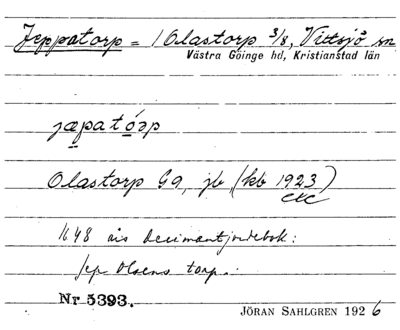 Jeppatorp = 1 Olastorp 3/8, Vittsjö sn
Västra Göinge hd, Kristianstad län
jæpatórp
Olastorp G9, jb (kb 1923)
etc
1648 års decimantjordebok:
Jep Olsens torp.
Nr 5393.
JÖRAN SAHLGREN 1926